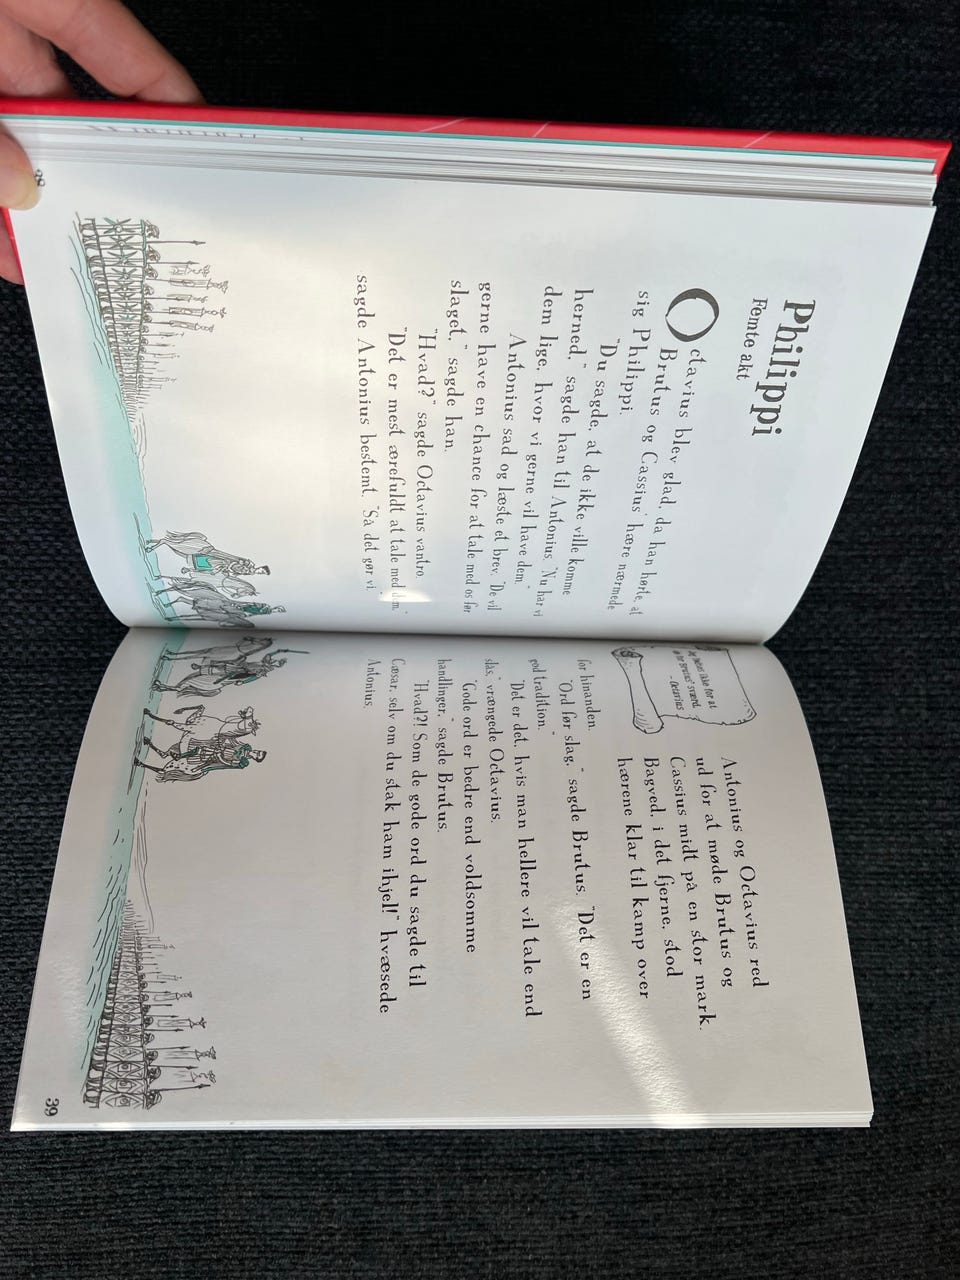 Philippi
Femte akt
Octavius blev glad, da han hørte, at
Brutus og Cassius' hære nærmede
sig Philippi.
"Du sagde, at de ikke ville komme
herned," sagde han til Antonius. "Nu har vi
dem lige, hvor vi gerne vil have dem."
Antonius sad og læste et brev. "De vil
gerne have en chance for at tale med os før
slaget," sagde han.
"Hvad?" sagde Octavius vantro.
"Det er mest ærefuldt at tale med dem,"
sagde Antonius bestemt. "Så det gør vi."
38
ikke for at
sværd.
- Octavius
Antonius og Octavius red
ud for at møde Brutus og
Cassius midt på en stor mark.
Bagved, i det fjerne, stod
hærene klar til kamp over
for hinanden.
"Ord før slag," sagde Brutus. "Det er en
god tradition."
"Det er det, hvis man hellere vil tale end
slås," vrængede Octavius.
"Gode ord er bedre end voldsomme
handlinger," sagde Brutus.
"Hvad?! Som de gode ord du sagde til
Cæsar, selv om du stak ham ihjel!" hvæsede
Antonius.
39